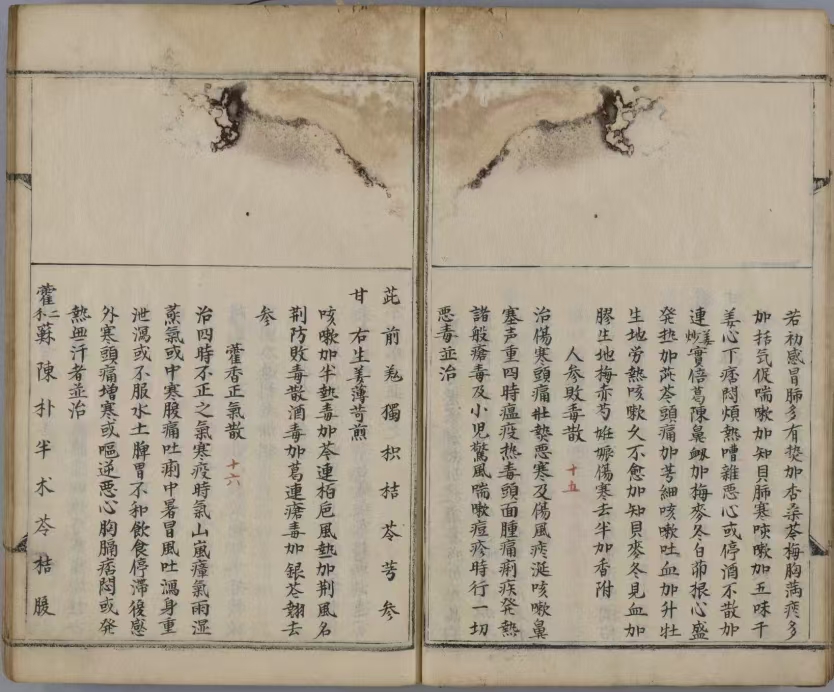 若初感冒肺多有热加杏桑苓梅胸满痰多
加桔气促喘嗽加知貝肺寒咳嗽加五味干
姜心下痞悶煩熱嘈雜恶心或停酒不散加
連姜炒實倍葛陳鼻衂加梅麥冬白茆根心盛
発热加茈苓頭痛加芎細咳嗽吐血加升牡
生地劳熱咳嗽久不愈加知貝麥冬見血加
膠生地梅赤芍姙娠傷寒去半加香附
人参敗毒散 十五
治傷寒頭痛壯熱悪寒及傷風痰涎咳嗽鼻
塞声重四時瘟疫热毒頭面腫痛痢疾発熱
諸般瘡毒及小児驚風喘嗽痘疹時行一切
恶毒並治
茈前羗獨枳桔苓芎参
甘 右生姜薄苛煎
咳嗽加半熱毒加芩連栢巵風熱加荆風名
荆防敗毒散酒毒加葛連瘡毒加銀芩翹去
参
藿香正氣散 十六
治四時不正之氣寒疫時氣山嵐瘴氣雨湿
蒸氣或中寒腹痛吐痢中暑冒風吐瀉身重
泄瀉或不服水土脾胃不和飲食停滞復感
外寒頭痛増寒或嘔逆恶心胸膈痞悶或発
熱無汗者並治
藿二禾蘇陳朴半朮苓桔腹